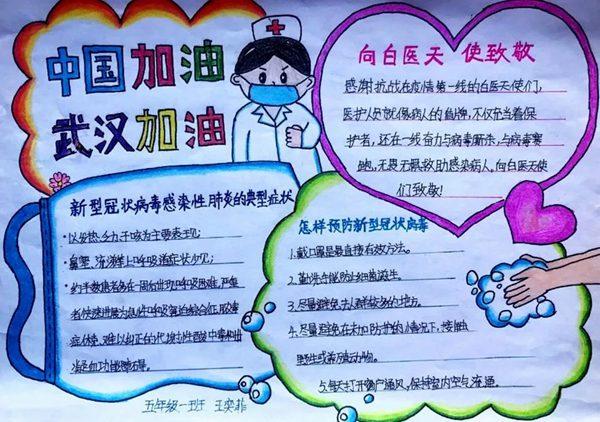 中国加油
武汉加油
向白医天使致敬
感谢抗战在疫情第一线的白医天使们,
医护人员就像病人的盾牌,不仅充当着保
护者,还在一线奋力与病毒厮杀,与病毒赛
跑,无畏无惧救助感染病人,向白医天使
们致敬!
新型冠状病毒感染性肺炎的典型症状
以发热、乏力、干咳为主要表现;
鼻塞、流涕等上呼吸道症状少见;
约半数患者多在一周后出现呼吸困难,严重
者快速进展为急性呼吸窘迫综合征,脓毒
症休克、难以纠正的代谢性酸中毒和出
凝血功能障碍。
怎样预防新型冠状病毒
1.戴口罩是最直接有效方法。
2.勤洗手保防止细菌滋生。
3.尽量避免去人群较多的地方。
4.尽量避免在未加防护的情况下,接触
野生或养殖动物。
5.每天打开窗户通风,保持室内空气流通。
五年级一班 王奕菲